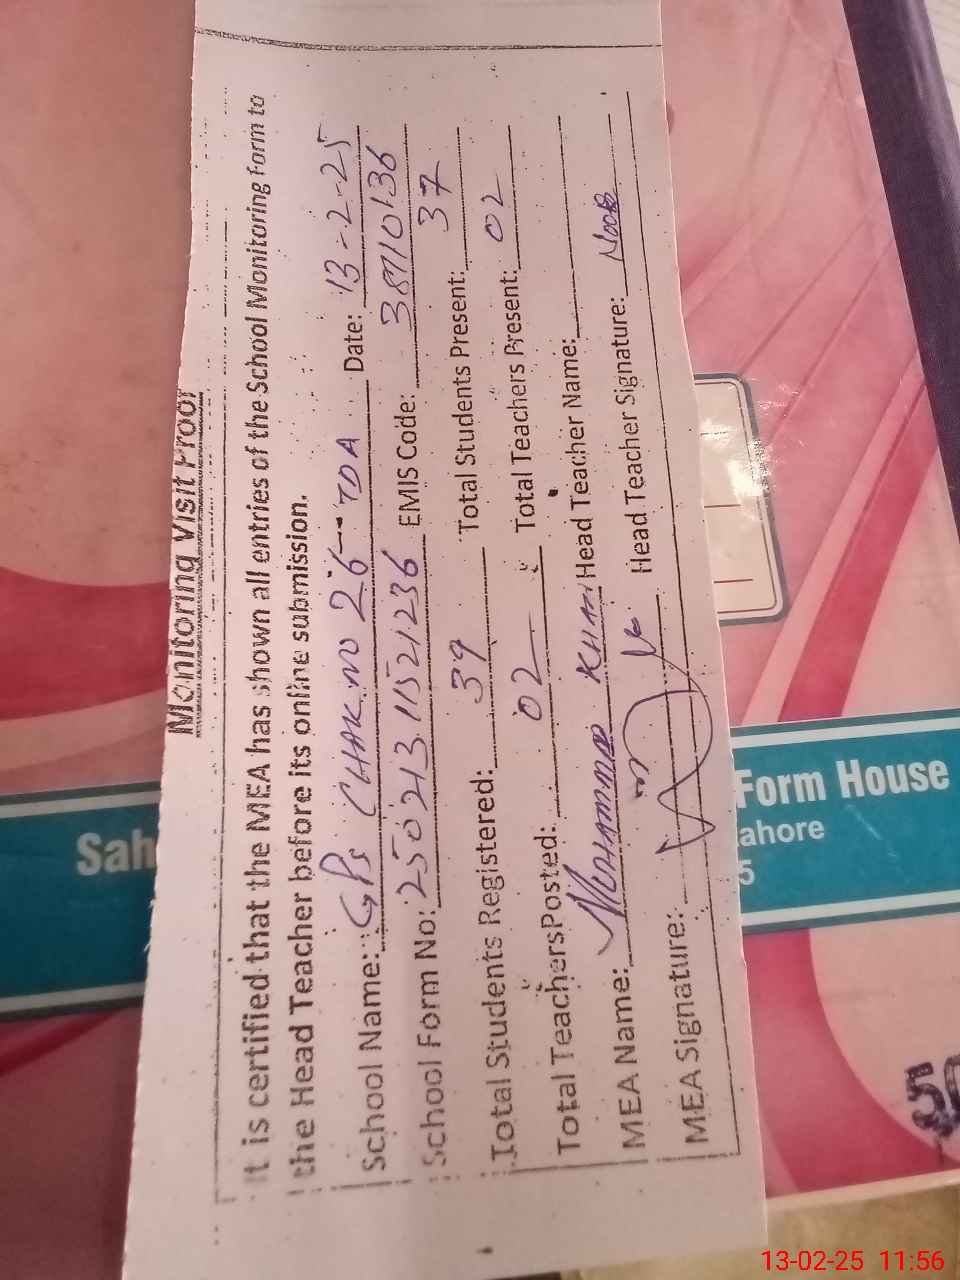 Monitoring Visit Proof
It is certified that the MEA has shown all entries of the School Monitoring Form to
the Head Teacher before its online submission.
School Name: GPS CHAK NO 26-TDA Date: 13-2-25
School Form No: 250213.11521236 EMIS Code: 38710136
Total Students Registered: 39 Total Students Present: 37
Total Teachers Posted: 02 Total Teachers Present: 02
MEA Name: MUHAMMAD KHAN Head Teacher Name:
MEA Signature: Head Teacher Signature:
Sah
Form House
ahore
5
13-02-25 11:56